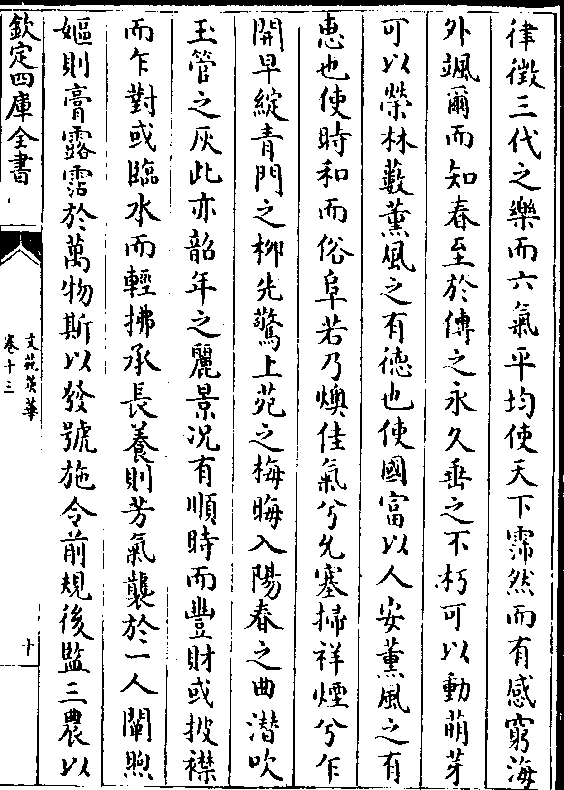 律徴三代之樂而六氣平均使天下霈然而有感窮海
外颯爾而知春至於傳之永久垂之不朽可以動萌芽
可以榮林藪薫風之有徳也使國富以人安薫風之有
惠也使時和而俗阜若乃燠佳氣兮允塞掃祥煙兮乍
開早綻青門之栁先驚上苑之梅晦入陽春之曲潜吹
玉管之灰此亦韶年之麗景况有順時而豐財或披襟
而乍對或臨水而輕拂承長養則芳氣襲於一人闡煦
嫗則膏露霑於萬物斯以發號施令前規後監三農以
欽定四庫全書
文苑英華
卷十三
十